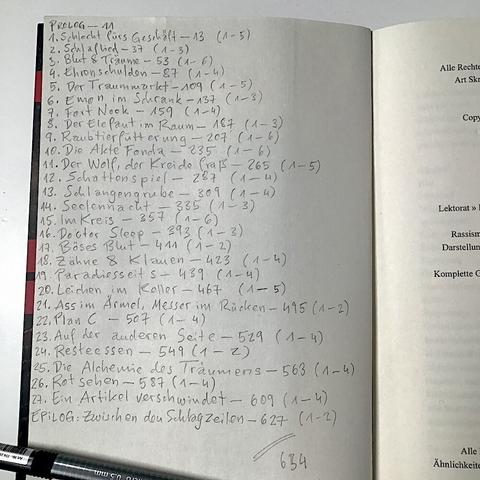 PROLOG – 11
1. Schlecht fürs Geschäft – 13 (1-5)
2. Schlaflied – 37 (1-3)
3. Blut & Träume – 53 (1-6)
4. Ehrenschulden – 87 (1-4)
5. Der Traummarkt – 109 (1-5)
6. Einen im Schrank – 137 (1-3)
7. Fort Nook – 159 (1-4)
8. Der Elefant im Raum – 187 (1-3)
9. Raubtierfütterung – 207 (1-6)
10. Die Akte Fonda – 235 (1-6)
11. Der Wolf, der Kreide fraß – 265 (1-5)
12. Schattenspiel – 287 (1-4)
13. Schlangengrube – 309 (1-4)
14. Seelennacht – 335 (1-3)
15. Im Kreis – 357 (1-6)
16. Doctor Sleep – 393 (1-3)
17. Böses Blut – 411 (1-2)
18. Zähne & Klauen – 423 (1-4)
19. Paradiesseits – 439 (1-4)
20. Leichen im Keller – 467 (1-5)
21. Ass im Ärmel, Messer im Rücken – 495 (1-2)
22. Plan C – 507 (1-4)
23. Auf der anderen Seite – 529 (1-4)
24. Resteessen – 549 (1-2)
25. Die Alchemie des Träumens – 563 (1-4)
26. Rot sehen – 587 (1-4)
27. Ein Artikel verschwindet – 609 (1-4)
EPILOG: Zwischen den Schlagzeilen – 627 (1-2)
634
Alle Rechte
Art Skr
Copy
Lektorat »
Rassism
Darstellun
Komplette G
Alle
Ähnlichkeite